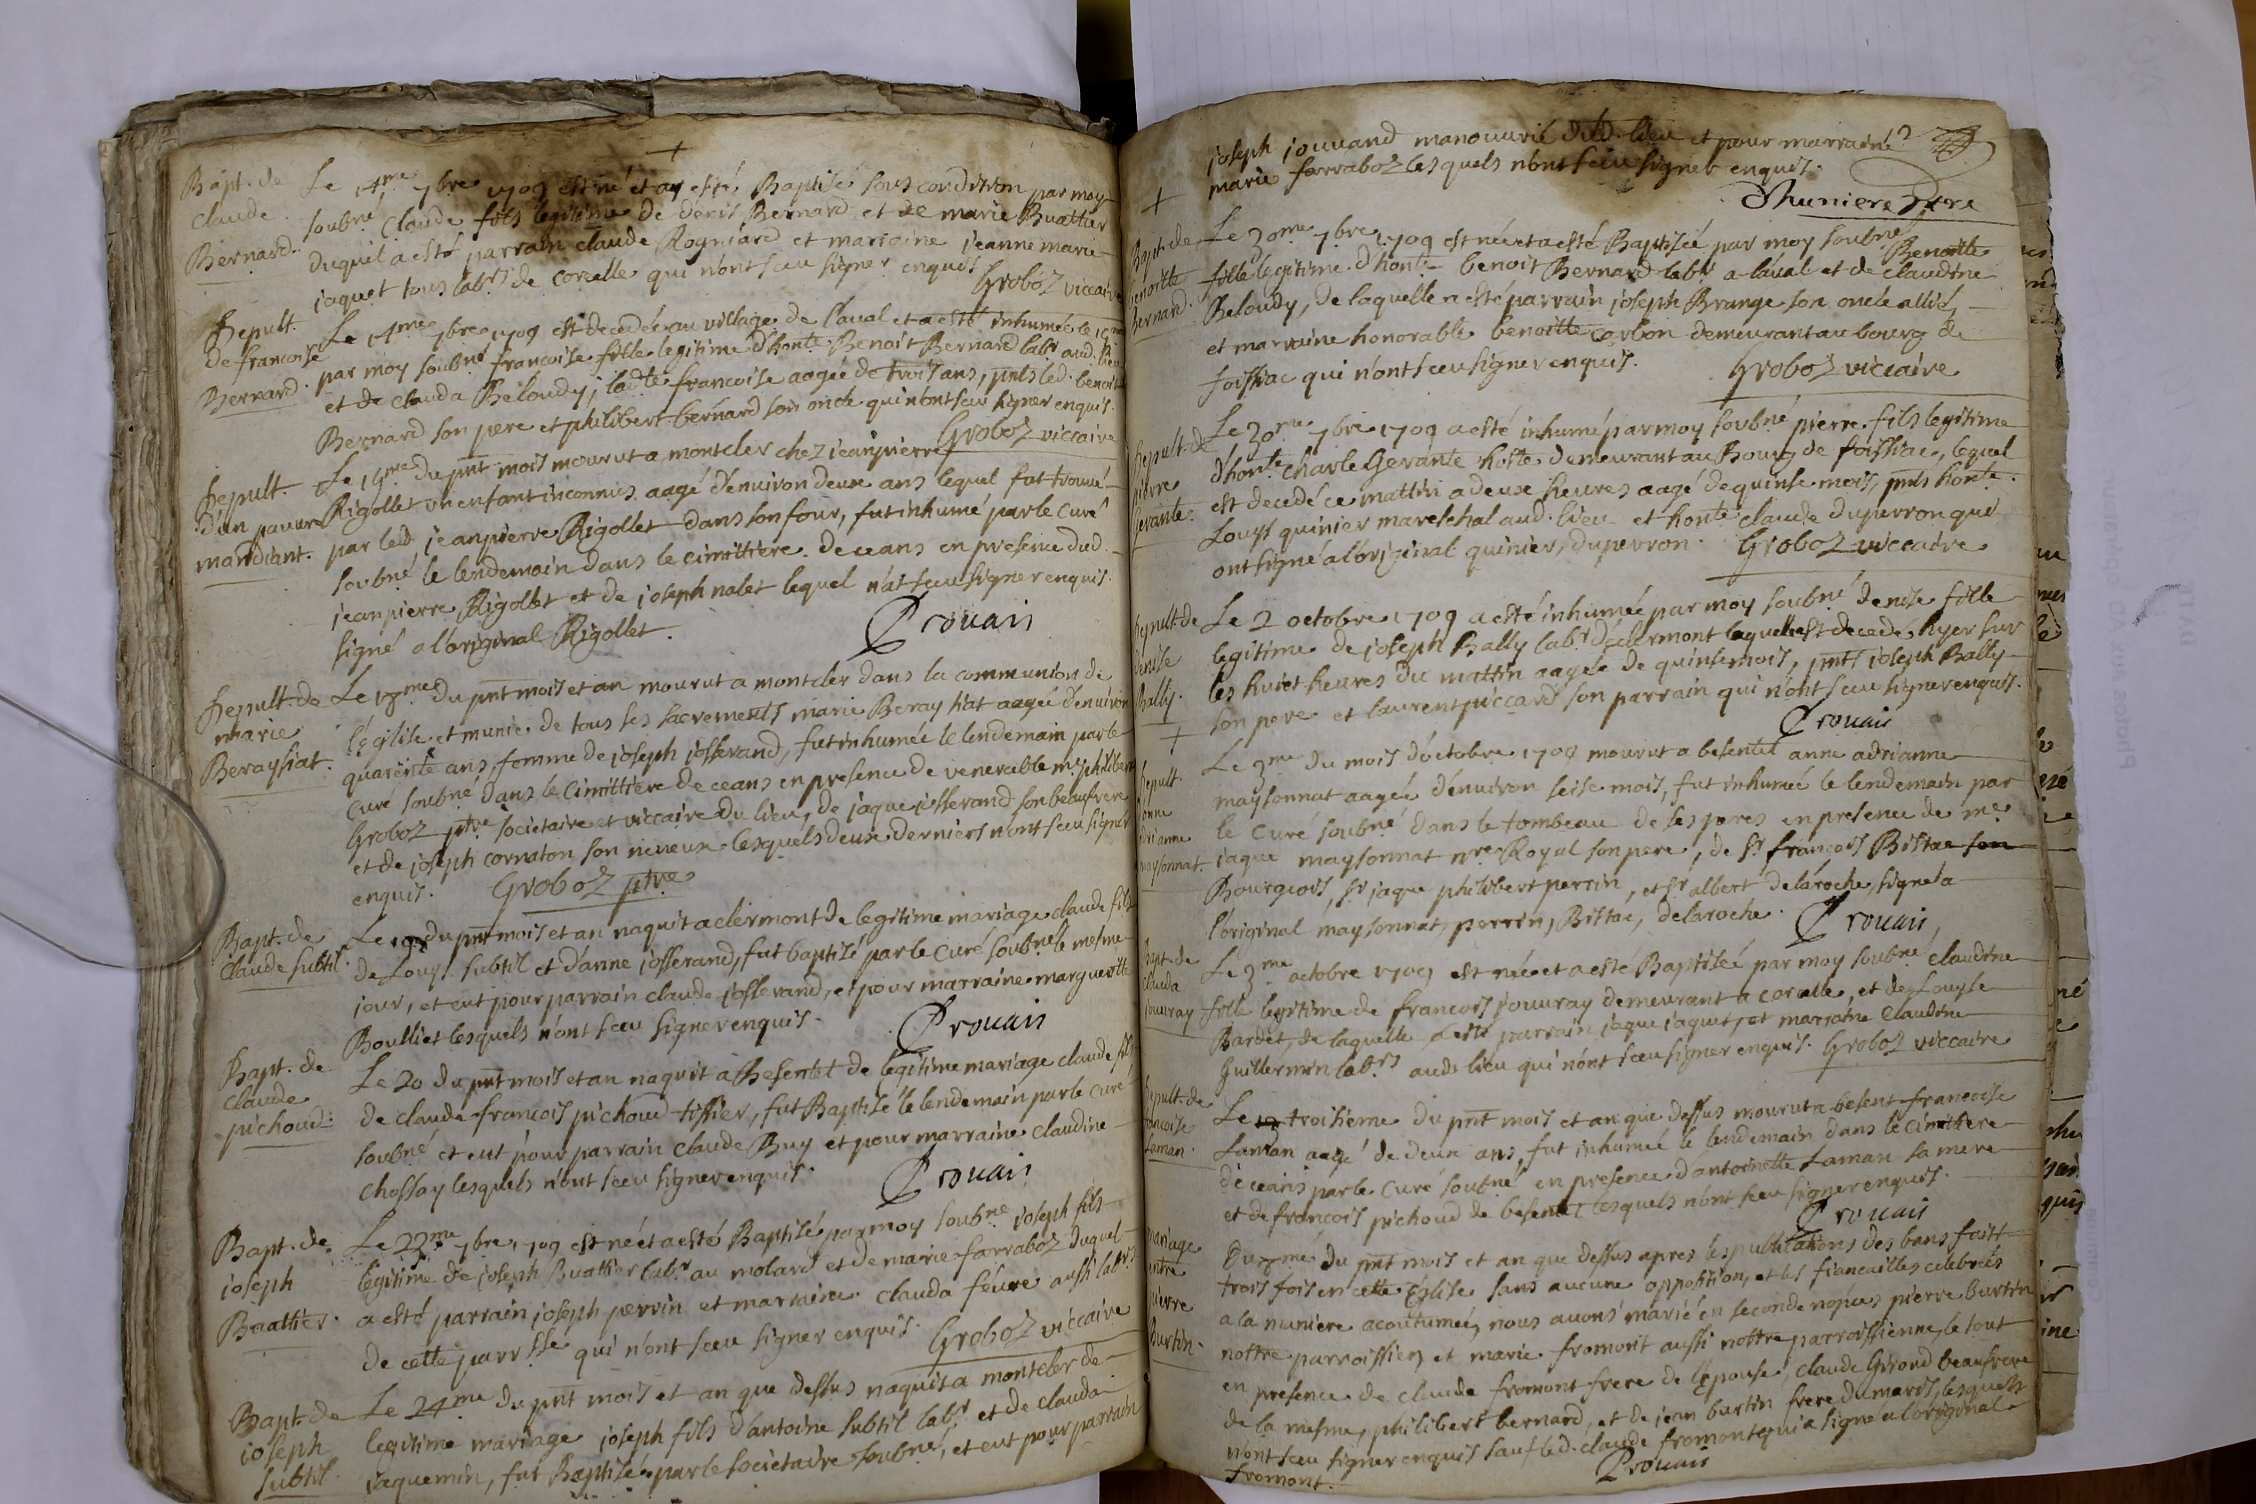 Bapt. de
Claude
Bernard.
Le 14me 7bre 1709 est né et a esté Baptisé sous condition par moy
soubné Claude fils legitime de denis Bernard et de marie Buattier
duquel a esté parrain claude Rogniard et marraine jeanne marie
jaquet tous labrs de corcelle qui n'ont sceu signer enquis
Groboz viccaire
Sepult.
de francoise
Bernard.
Le 14me 7bre 1709 est decedée au village de laval et a esté inhumée le
par moy soubné francoise fille legitime d'honte Benoit Bernard labr aud. lieu
et de Clauda Beloudy, ladte francoise aagée de trois ans, pnts led. benoit
Bernard son pere et philibert bernard son oncle qui n'ont sceu signer enquis.
Groboz viccaire
Sepult.
d'un pauvre
mandiant.
Le du pnt mois mourut a montcler chez jeanpierre
Rigollet un enfant inconnus aagé d'environ deux ans lequel fut trouvé
par led jeanpierre Rigollet dans son four, fut inhumé par le curé
soubné le lendemain dans le cimittiere de ceans en presence dud.
jeanpierre Rigollet et de joseph nalet lequel n'at sceu signer enquis.
signé a l'original Rigollet.
Prouais
Sepult. de
marie
Beraysiat.
Le du pnt mois et an mourut a montcler dans la communion de
l'église et munie de tous ses sacrements marie Beraysiat aagée d'environ
quarente ans, femme de joseph josserand, fut inhumée le lendemain par le
curé soubné dans le cimittiere de ceans en presence de venerable mre philibert
Groboz ptre societaire et viccaire du lieu, de jaque josserand son beaufrere
et de joseph cornaton son neveux lesquels deux derniers n'ont sceu signer
enquis. Groboz ptre
Bapt. de
Claude subtil.
Le du pnt mois et an naquit a clermont de legitime mariage claude fils
de Louys subtil et d'anne josserand, fut baptisé par le curé soubné le mesme
jour, et eut pour parrain claude josserand, et pour marraine marguerite
Boulliet lesquels n'ont sceu signer enquis.
Prouais
Bapt. de
Claude
pichoud.
Le 20 du pnt mois et an naquit a Besentet de legitime mariage claude fils
de claude francois pichoud tissier, fut Baptisé le lendemain par le curé
soubné et eut pour parrain claude Buy et pour marraine claudine
chossay lesquels n'ont sceu signer enquis.
Prouais
Bapt. de
joseph
Buattier.
Le 22me 7bre 1709 est né et a esté Baptisé par moy soubné joseph fils
legitime de joseph Buattier labr au molard et de marie farraboz duquel
a esté parrain joseph perrin et marraine clauda feure aussi labrs
de cette parrsse qui n'ont sceu signer enquis. Groboz viccaire
Bapt. de
joseph
subtil.
Le 24me du pnt mois et an que dessus naquit a montcler de
legitime mariage joseph fils d'antoine subtil labr et de clauda
jaquemin, fut Baptisé par le societaire soubné, et eut pour parrain
joseph jouvand manouvrié dud. lieu et pour marraine
marie farraboz lesquels n'ont sceu signer enquis.
Bapt. de
benoitte
Bernard.
Le 30me 7bre 1709 est née et a esté Baptisée par moy soubné Benoitte
fille legitime d'honte benoit Bernard labr a laval et de claudine
Beloudy, de laquelle a esté parrain joseph Brange son oncle allié,
et marraine honorable benoitte carbon demeurant au bourg de
foissiac qui n'ont sceu signer enquis.
Groboz viccaire
Sepult. de
pierre
Gerante.
Le 30me 7bre 1709 a esté inhumé par moy soubné pierre fils legitime
d'honte charle Gerante hoste demeurant au Bourg de foissiac, lequel
est decedé ce mattin a deux heures aagé de quinse mois, pnts honte.
Louys quinier mareschal aud. lieu et honte claude duperron qui
ont signé a l'original quinier, duperron. Groboz viccaire
Sepult. de
denise
Bally.
Le 2 octobre 1709 a esté inhumée par moy soubné denise fille
legitime de joseph Bally labr de clermont laquelle est decedé hyer sur
les huict heures du mattin aagée de quinse mois, pnts joseph Bally
son pere et laurent piccard son parrain qui n'ont sceu signer enquis.
Prouais
Sepult.
anne
adrianne
maysonnat.
Le 3me du mois d'octobre 1709 mourut a besentet anne adrianne
maysonnat aagée d'environ seise mois, fut inhumée le lendemain par
le curé soubné dans le tombeau de ses peres en presence de me
jaque maysonnat nre Royal son pere, de sr francois Bistac son
Bourgeois, sr jaque philibert perrin, et sr albert delaroche, signé a
l'original maysonnat, perrin, Bistac, delaroche.
Prouais
Bapt. de
clauda
jouvray
Le 3me octobre 1709 est née et a esté Baptisée par moy soubné claudine
fille legitime de francois jouvray demeurant a corcelle, et de Louyse
Bardet, de laquelle a esté parrain jaque jaquet, et marraine claudine
Guillermin labrs aud. lieu qui n'ont sceu signer enquis. Groboz viccaire
Sepult. de
francoise
Laman.
Le troisieme du pnt mois et an que dessus mourut a besent francoise
Laman aagé de deux ans, fut inhumée le lendemain dans le cimittiere
de ceans par le curé soubné en presence d'antoinette Laman sa mere
et de francois pichoud de besentet lesquels n'ont sceu signer enquis.
Prouais
mariage
entre
pierre
Burtin.
Du du pnt mois et an que dessus apres les publications des bans faitt
trois fois en cette Eglise sans aucune oppotition, et les fiancailles celebrées
a la maniere acoutumée, nous avons marié en seconde nopces pierre burtin
nottre parroissien et marie fromont aussi nottre parroissienne, le tout
en presence de claude fromont frere de l'epouse, claude Girond beaufrere
de la mesme, philibert bernard, et de jean burtin frere du marié, lesquels
n'ont sceu signer enquis sauf led. claude fromont qui a signé a l'original
fromont.
Prouais